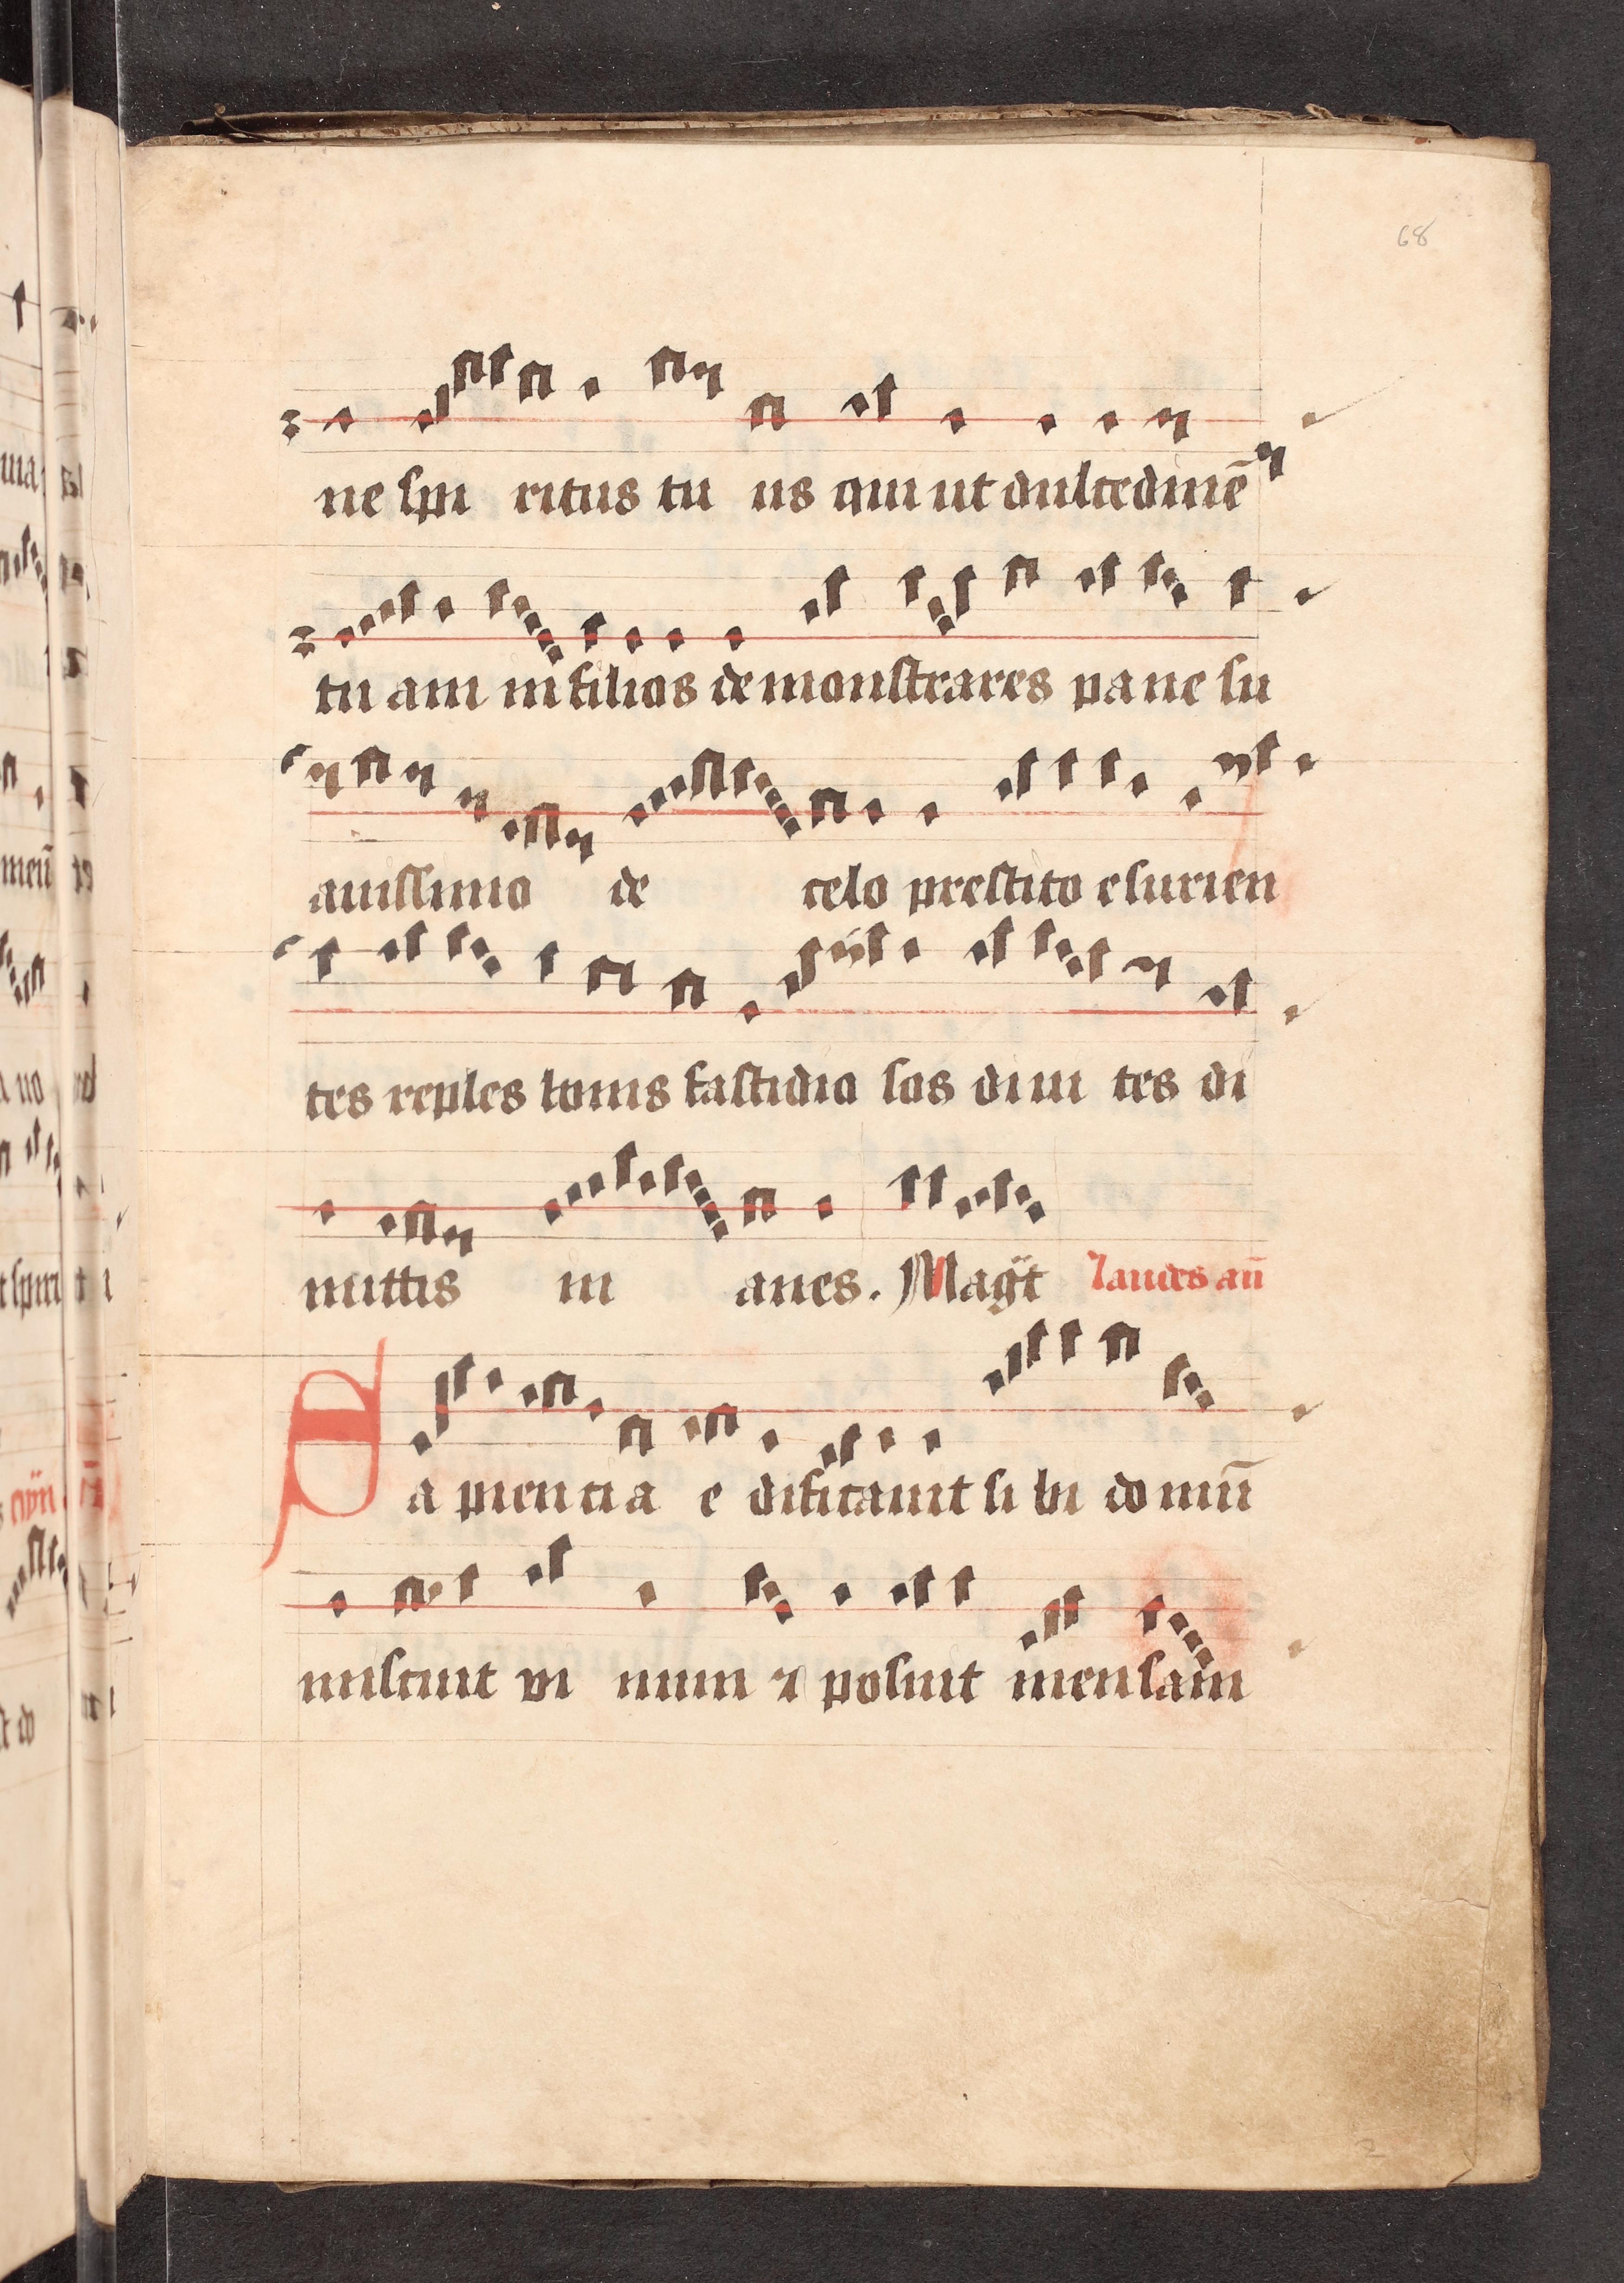 68
ne spi ritus tu us qui ut dulcedinē
tu am in filios demonstrares pa ne su
auissimo de celo prestito esurien
tes reples bonis fastidio sos diui tes di
mittis in anes. Magĩt Laudes añ
Sa piencia e dificauit si bi domũ
miscuit vi num ⁊ posuit mensam